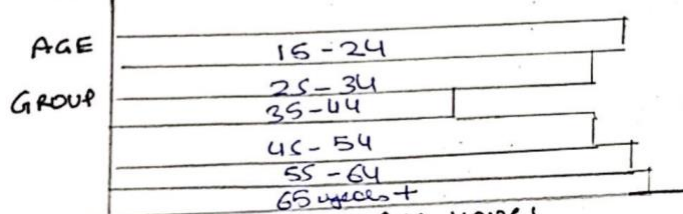 AGE
GROUP
15 - 24
25 - 34
35 - 44
45 - 54
55 - 64
65 +